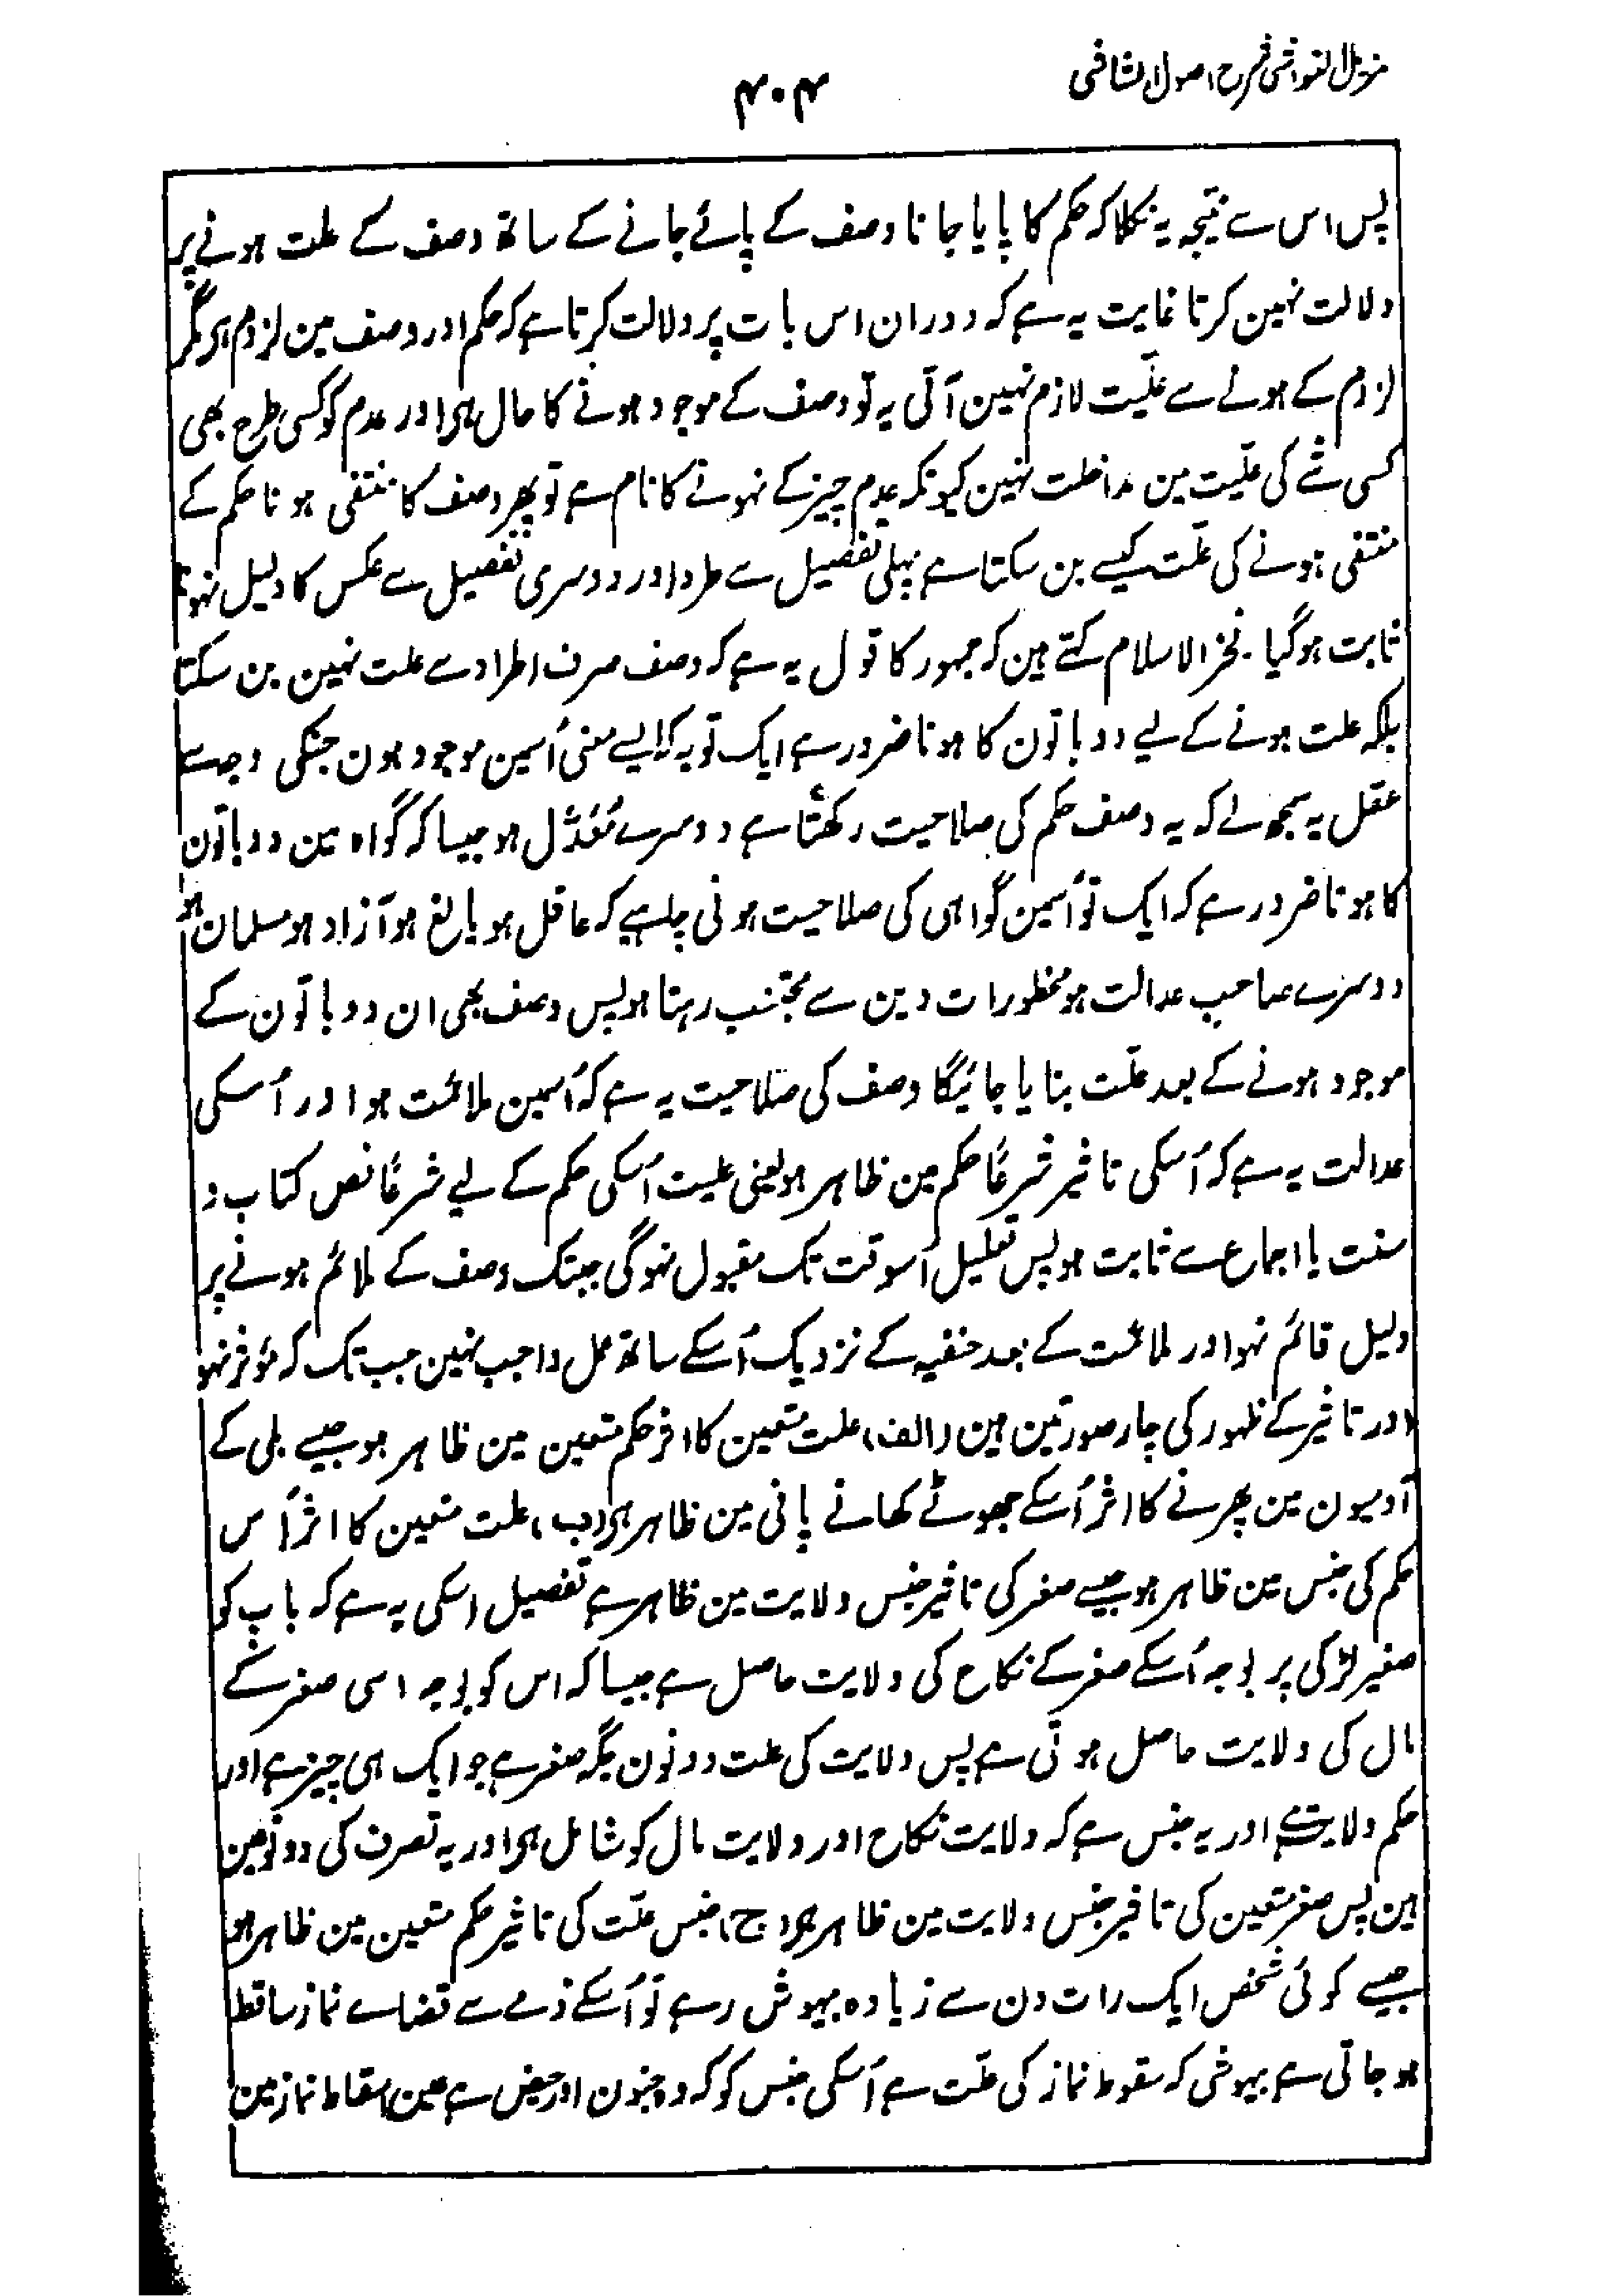 مزیل الغواشی شرح اصول الشاشی
۴۰۴
پس اس سے نتیجہ یہ نکلا کہ حکم کا پایا جانا وصف کے پائے جانے کے ساتھ وصف کے علت ہونے پر
دلالت نہین کرتا غایت یہ ہے کہ دوران اس بات پر دلالت کرتا ہے کہ حکم اور وصف مین لزوم ہی مگر
لزوم کے ہونے سے علیّت لازم نہین آتی یہ تو وصف کے موجود ہونے کا حال ہی اور عدم کو کسی طرح بھی
کسی شے کی علیّت مین مداخلت نہین کیونکہ عدم چیز کے نہونے کا نام ہے تو پھر وصف کا منتفی ہونا حکم کے
منتفی ہونے کی علّت کیسے بن سکتا ہے پہلی تفصیل سے طرد اور دوسری تفصیل سے عکس کا دلیل نہونا
ثابت ہوگیا۔ فخر الاسلام کہتے ہین کہ جمہور کا قول یہ ہے کہ وصف صرف اطراد سے علت نہین بن سکتا
بلکہ علت ہونے کے لیے دو باتون کا ہونا ضرور ہے ایک تو یہ کہ ایسے معنی اُسمین موجود ہون جنکی وجہ سے
عقل یہ سمجھ لے کہ یہ وصف حکم کی صلاحیت رکھتا ہے دوسرے مُعَدَّل ہو جیسا کہ گواہ مین دو باتون
کا ہونا ضرور ہے کہ ایک تو اُسمین گواہی کی صلاحیت ہونی چاہیے کہ عاقل ہو بالغ ہو آزاد ہو مسلمان ہو
دوسرے صاحب عدالت ہو محظورات دین سے مجتنب رہتا ہو پس وصف بھی ان دو باتون کے
موجود ہونے کے بعد علّت بنایا جائیگا وصف کی صلاحیت یہ ہے کہ اُسمین ملائمت ہو اور اُسکی
عدالت یہ ہے کہ اُسکی تاثیر شرعًا حکم مین ظاہر ہو یعنی علیت اُسکی حکم کے لیے شرعًا نص کتاب و
سنت یا اجماع سے ثابت ہو پس تعلیل اُسوقت تک مقبول نہوگی جبتک وصف کے ملائم ہونے پر
دلیل قائم نہو اور ملائمت کے بعد حنفیہ کے نزدیک اُسکے ساتھ عمل واجب نہین جب تک کہ مؤثر نہو
اور تاثیر کے ظہور کی چار صورتین ہین (الف) علت متعین کا اثر حکم متعین مین ظاہر ہو جیسے بلی کے
آدمیون مین پھرنے کا اثر اُسکے جھوٹے کھانے پانی مین ظاہر ہی (ب) علت متعین کا اثر اُس
حکم کی جنس مین ظاہر ہو جیسے صغر کی تاثیر جنس ولایت مین ظاہر ہے تفصیل اسکی یہ ہے کہ باپ کو
صغیر لڑکی پر بوجہ اُسکے صغر کے نکاح کی ولایت حاصل ہے جیسا کہ اس کو بوجہ اسی صغر کے
مال کی ولایت حاصل ہوتی ہے پس ولایت کی علت دونون جگہ صغر ہے جو ایک ہی چیز ہے اور
حکم ولایت ہے اور یہ جنس ہے کہ ولایت نکاح اور ولایت مال کو شامل ہی اور یہ تصرف کی دو نوعین
ہین پس صغر متعین کی تاثیر جنس ولایت مین ظاہر ہی (ج) جنس علّت کی تاثیر حکم متعین مین ظاہر ہو
جیسے کوئی شخص ایک رات دن سے زیادہ بیہوش رہے تو اُسکے ذمے سے قضاے نماز ساقط
ہو جاتی ہے بیہوشی کہ سقوط نماز کی علّت ہے اُسکی جنس کو کہ وہ جنون اور حیض ہے عین اسقاط نماز مین